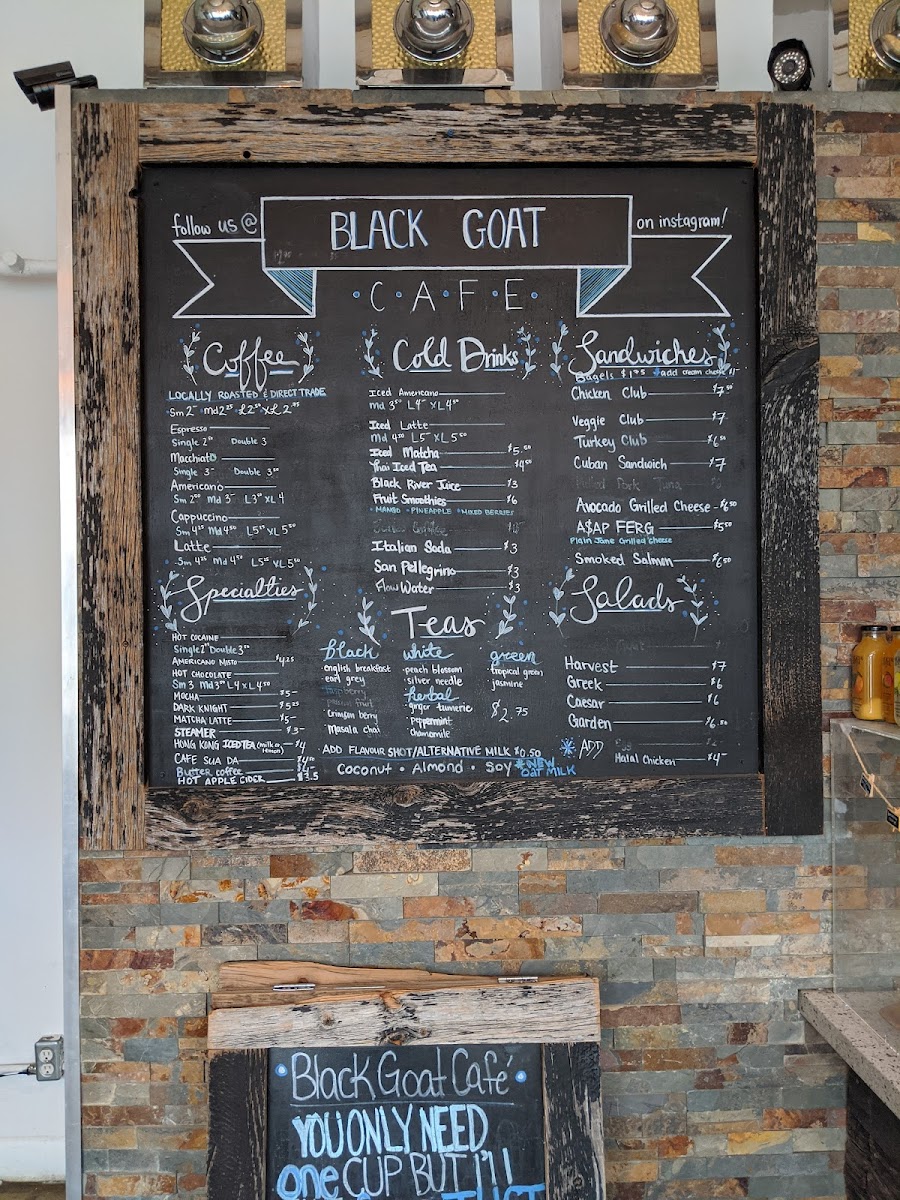 follow us @ BLACK GOAT on instagram!
CAFE
Coffee
LOCALLY ROASTED & DIRECT TRADE
Sm 2 Md 2.25 L 2.50 XL 2.75
Espresso
Single 2.50 Double 3
Macchiato
Single 3 Double 3.50
Americano
Sm 2.50 Md 3 L 3.50 XL 4
Cappuccino
Sm 4.25 Md 4.50 L 5 XL 5.50
Latte
Sm 4.25 Md 4.50 L 5 XL 5.50
Specialties
HOT COCAINE
Single 2 Double 3
AMERICANO MISTO $4.25
HOT CHOCOLATE
Sm 3 Md 3.50 L 4 XL 4.50
MOCHA $5
DARK KNIGHT $5.25
MATCHA LATTE $5
STEAMER $3
HONG KONG ICED TEA (milk or lemon) $4
CAFE SUA DA $4.50
Butter coffee $4
HOT APPLE CIDER $3.5
Cold Drinks
Iced Americano
Md 3.50 L 4 XL 4.50
Iced Latte
Md 4.50 L 5 XL 5.50
Iced Matcha $5.50
Thai Iced Tea $4.50
Black River Juice $3
Fruit Smoothies $6
• MANGO • PINEAPPLE • MIXED BERRIES
Italian Soda $3
San Pellegrino $3
Flow Water $3
Teas
black
english breakfast
earl grey
Crimson berry
Masala chai
white
peach blossom
silver needle
herbal
ginger turmeric
peppermint
chamomile
green
tropical green
jasmine
$2.75
ADD FLAVOUR SHOT/ALTERNATIVE MILK $0.50
Coconut • Almond • Soy *NEW
OAT MILK
Sandwiches
Bagels $1.75 add cream cheese $1
Chicken Club $7.50
Veggie Club $7
Turkey Club $6.50
Cuban Sandwich $7
Avocado Grilled Cheese $6.50
A$AP FERG $5.50
Plain Jane Grilled Cheese
Smoked Salmon $6.50
Salads
Harvest $7
Greek $6
Caesar $6
Garden $6.50
* ADD
Halal Chicken $4
Black Goat Café
YOU ONLY NEED
one CUP BUT I'll